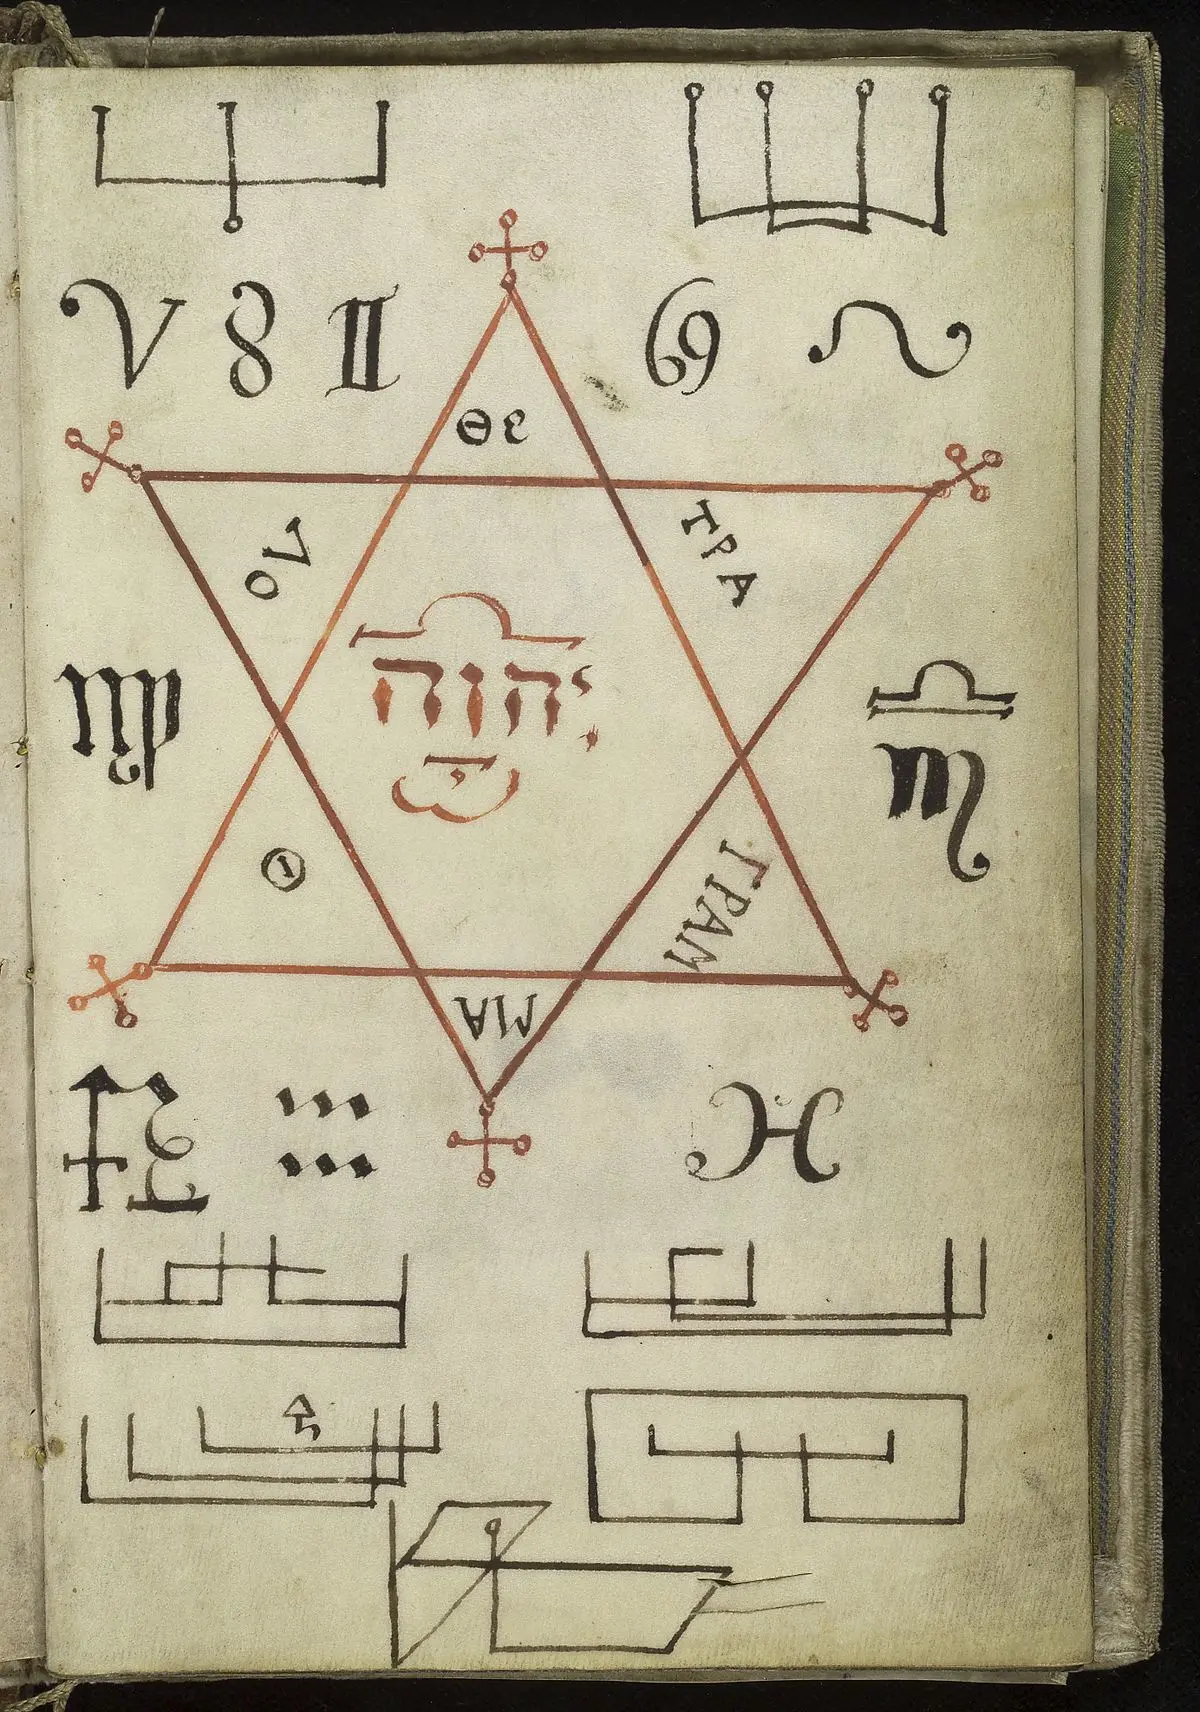 ♈ ♉ ♊ ♋ ♌
ΘΕ
ΛΟ
ΤΡΑ
יהוה
♍
♎
♏
Θ
ΓΡΑΜ
ΜΑ
♐
♓